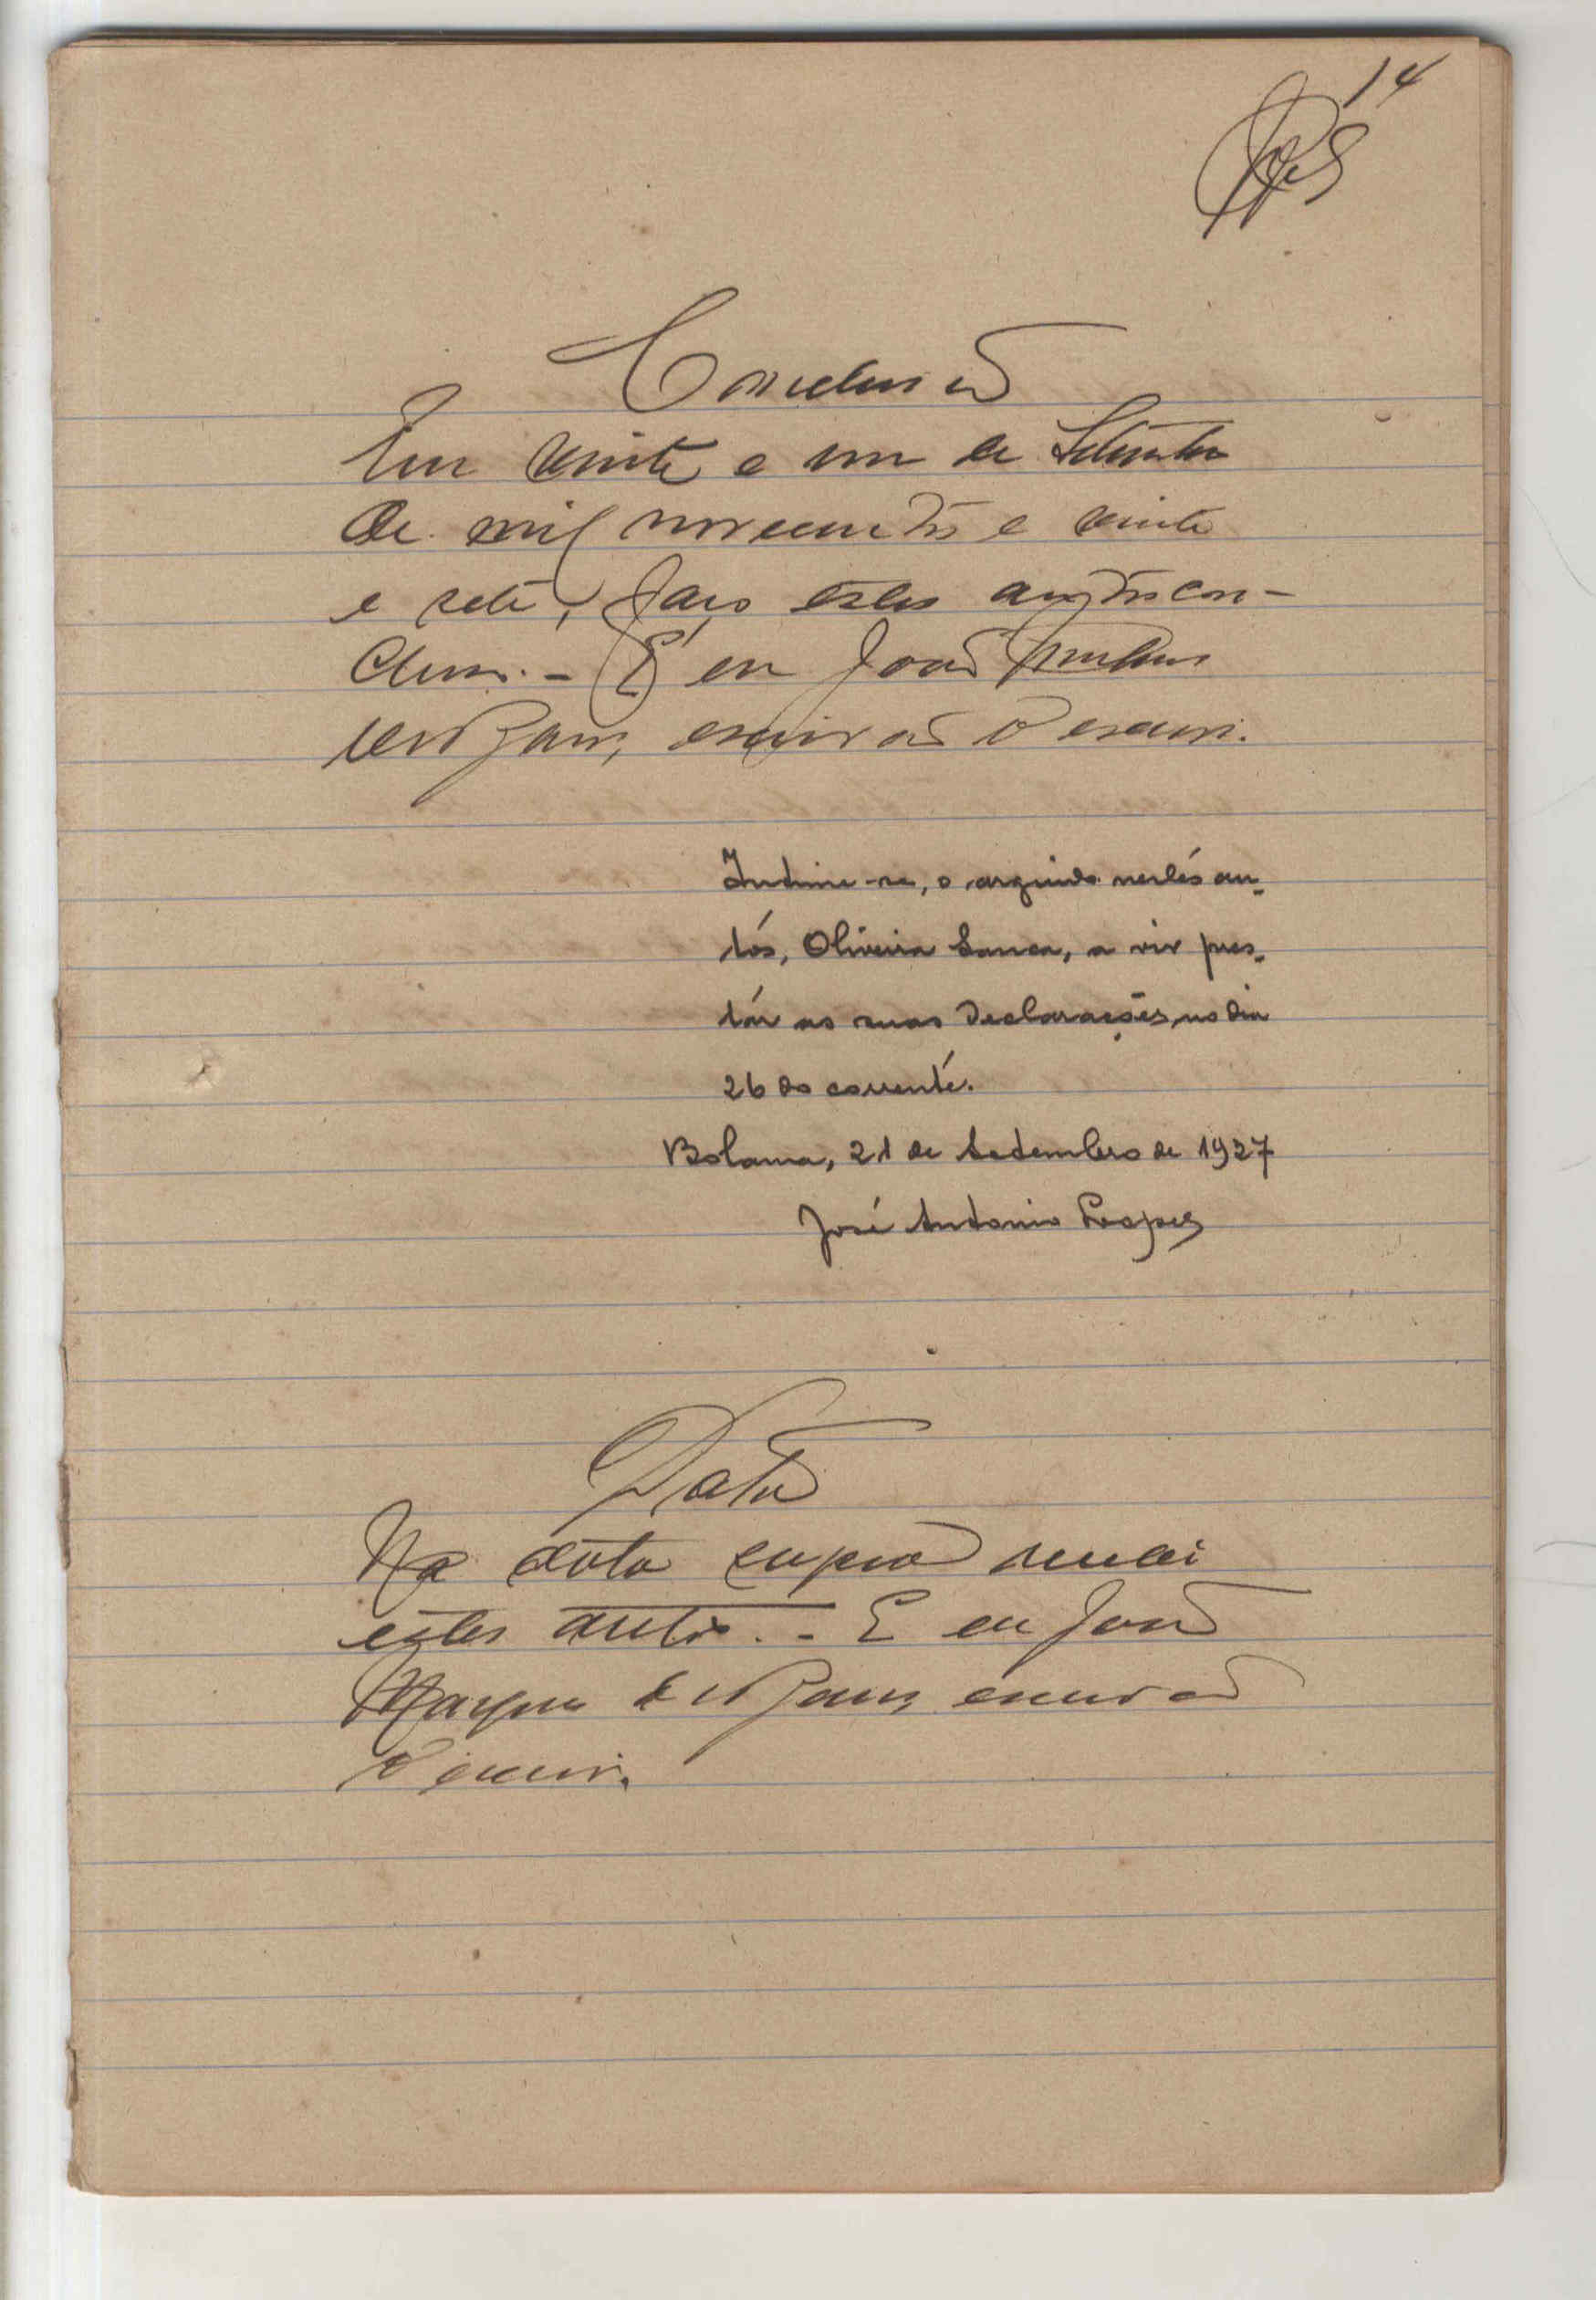 14
Conclusão
Em vinte e um de Setembro
de mil novecentos e vinte
e sete, faço estes autos con-
clusos. - E eu João
escrivão o escrevi.
Intime-se, o arguido nestés au-
tós, Oliveira Sanca, a vir pres-
tár as suas declarações, no dia
26 do correnté.
Bolama, 21 de Setembro de 1927
José Antonio Lopes
Data
Na data supra recebi
estes autos. - E eu João
escrivão
o escrevi.